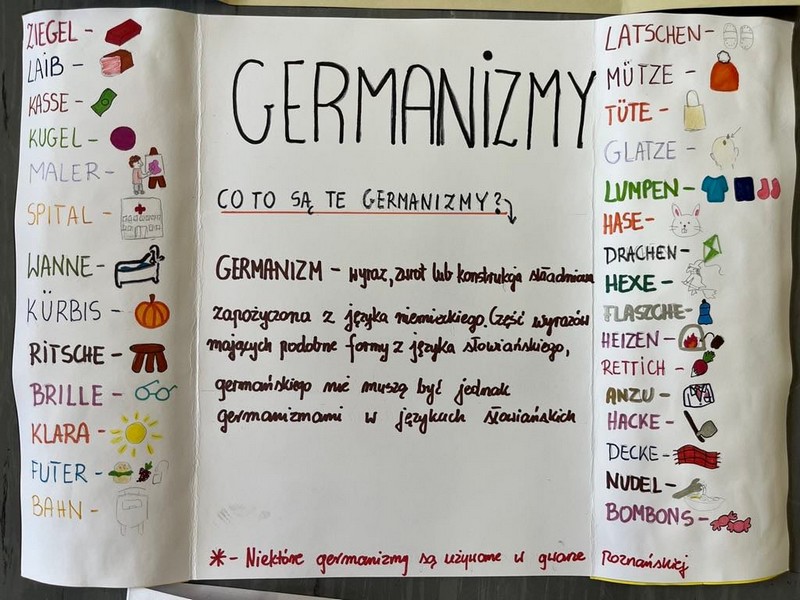 ZIEGEL -
LAIB -
KASSE -
KUGEL -
MALER -
SPITAL -
WANNE -
KÜRBIS -
RITSCHE -
BRILLE -
KLARA -
FUTER -
BAHN -
GERMANIZMY
CO TO SĄ TE GERMANIZMY?
GERMANIZM - wyraz, zwrot lub konstrukcja składniowa
zapożyczona z języka niemieckiego. Część wyrazów
mających podobne formy z języka słowiańskiego,
germańskiego nie muszą być jednak
germanizmami w językach słowiańskich
* - Niektóre germanizmy są używane w gwarze Poznańskiej
LATSCHEN -
MÜTZE -
TÜTE -
GLATZE -
LUMPEN -
HASE -
DRACHEN -
HEXE -
FLASZCHE -
HEIZEN -
RETTICH -
ANZU -
HACKE -
DECKE -
NUDEL -
BOMBONS -